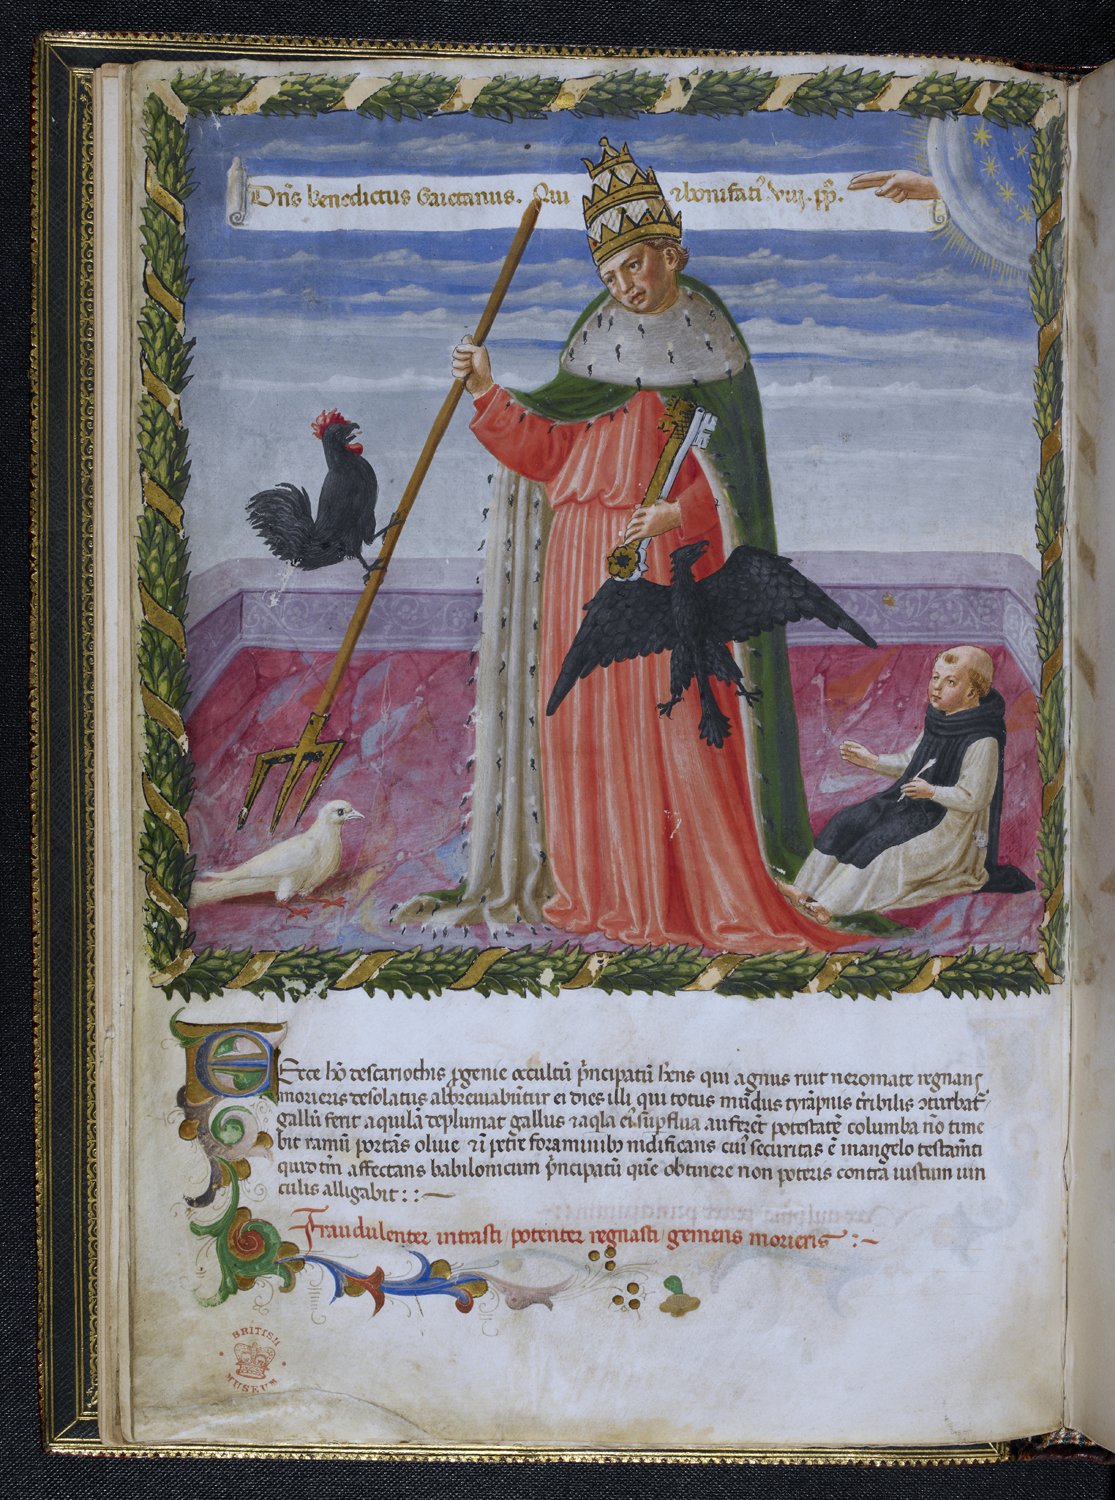 Dn̄s benedictus Gaietanus. Qui & bonifati᷒ viij. pp̄.
Ecce hō descariothis ꝓgenie occultū pͥncipatū hn̄s qui agnus ruit neromate regnans
morieris desolatus abbreuiabūtur ei dies illi qui totus mūdus tyrāpnus tr̄ibilis ꝯturbat᷒
gallū ferit aquilā deplumat gallus & aqla ei᷒ suꝑflua auferēt potestatē columba nō time
bit ramū portās oliue & ī petre foraminibꝰ nidificans cui᷒ securitas ē in angelo testamēti
quid tm̄ affectans babilonicum pͥncipatū quē obtinere non poteris contra iustum uin
culis alligabit : : ~
Fraudulenter intrasti / potenter regnasti / gemens morieris : ~
BRITISH
MUSEUM